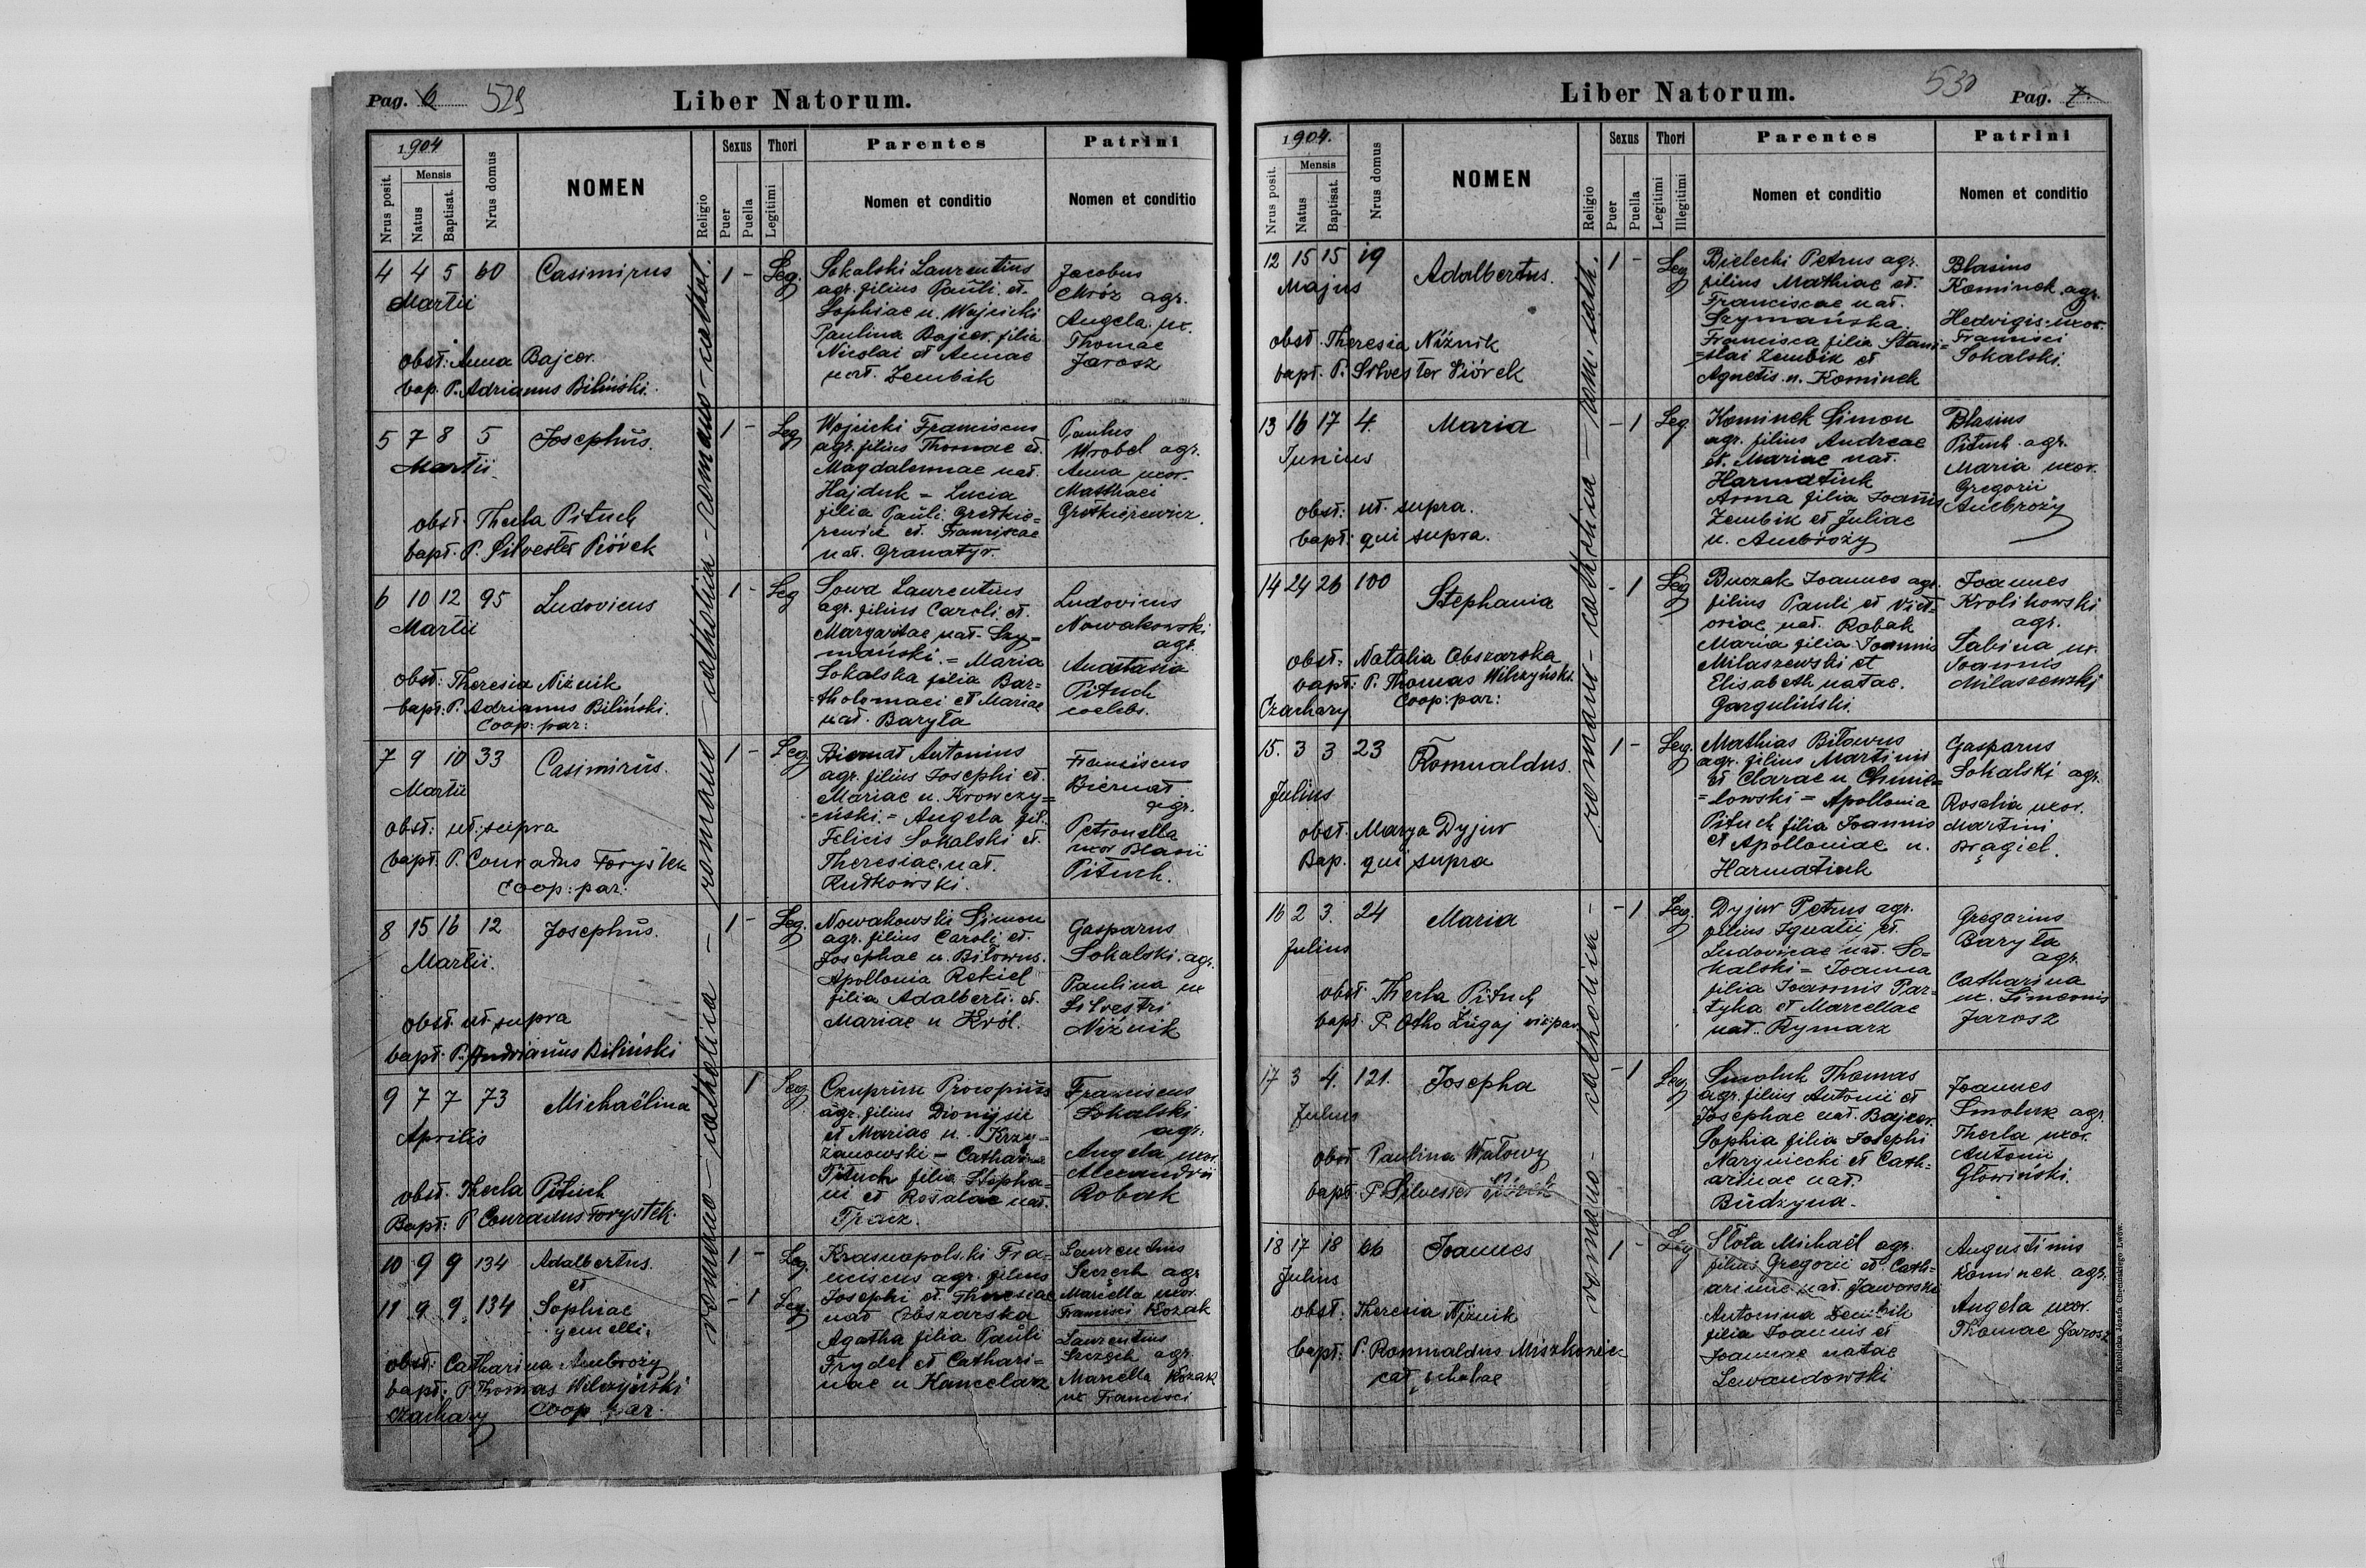 Pag. 6 529
Liber Natorum.
1904
Nrus posit.
Mensis
Natus
Baptisat.
Nrus domus
NOMEN
Religio
Sexus
Puer
Puella
Thori
Legitimi
Parentes
Nomen et conditio
Patrini
Nomen et conditio
romano - catholica - romano - catholica - romano - cathol.
4 4 5 60 Casimirus 1 - Leg.
Martii
obst: Anna Bajcer
bap. P. Adrianus Biliński.
Sokalski Laurentius
agr. filius Pauli et
Sophiae n. Wojcicki
Paulina Bajcer filia
Nicolai et Annae
nat. Zembik
Jacobus
Mróz agr.
Angela ux.
Thomae
Jarosz
5 7 8 5 Josephus. 1 - Leg
Martii
obst. Thecla Pituch
bapt. P. Silvester Piórek
Wojcicki Franciscus
agr. filius Thomae et
Magdalennae nat.
Hajduk = Lucia
filia Pauli Gretkie=
rewicz et Franciscae
nat. Granatyr
Paulus
Wrobel agr.
Anna uxor.
Matthaei
Gretkierewicz.
6 10 12 95 Ludovicus 1 - Leg
Martii
obst: Theresia Niznik
bapt: P. Adrianus Biliński.
Coop: par:
Sowa Laurentius
agr. filius Caroli et
Margaritae nat. Szy=
mański. = Maria
Sokalska filia Bar=
=tholomaei et Mariae
nat. Baryła
Ludovicus
Nowakowski
agr.
Anastasia
Pituch
coelebs.
7 9 10 33 Casimirus. 1 - Leg
Martii
obst: ut supra
bapt. P. Conradus Forystek
Coop: par:
Biernat Antonius
agr. filius Josephi et
Mariae n. Krowczy=
=ński. = Angela fil.
Felicis Sokalski et
Theresiae nat.
Rudkowski.
Franciscus
Biernat
agr.
Petronella
uxor Blasii
Pituch.
8 15 16 12 Josephus. 1 - Leg.
Martii.
obst. ut supra
bapt. P. Andrianus Biliński
Nowakowski Simon
agr. filius Caroli et
Josephae n. Biłowus.
Apollonia Rekiel
filia Adalberti et
Mariae n Król.
Gasparus
Sokalski. agr.
Paulina ux
Silvestri
Niżnik
9 7 7 73 Michaëlina 1 Leg
Aprilis
obst. Thecla Pituch
Bapt: P Conradus Forystek.
Czuprun Procopius
agr. filius Dionysii
et Mariae n. Krzy=
żanowski - Catharina
Pituch filia Stepha=
ni et Rosalae nat.
Tracz.
Franciscus
Sokalski
agr.
Angela uxor.
Alexandrii
Robak
10 9 9 134 Adalbertus. 1 - Leg.
et
11 9 9 134 Sophiae - 1 Leg
gemelli.
obst: Catharina Ambroży
bapt: P Thomas Wilczyński
Czachary Coop par.
Krasnapolski Fra=
nciscus agr. filius
Josephi et Theresiae
nat Obszarska
Agatha filia Pauli
Frydel et Cathari=
nae n Kancelarz
Laurentius
Szczęch agr
Mariella uxor
Francisci Kozak
Laurentius
Szczęch agr.
Mariella Kozak
ux Francisci
530
Liber Natorum.
Pag. 7.
1904.
Nrus posit.
Mensis
Natus
Baptisat.
Nrus domus
NOMEN
Religio
Sexus
Puer
Puella
Thori
Legitimi
Illegitimi
Parentes
Nomen et conditio
Patrini
Nomen et conditio
romano - catholica - romano - catholica - rom. cath.
12 15 15 19 Adalbertus. 1 - Leg
Majus
obst. Theresia Niżnik
bapt. P. Silvester Piórek
Bielecki Petrus agr.
filius Mathiae et
Franciscae nat.
Szymańska.
Francisca filia Stani=
=slai Zembik et
Agnetis n. Kominek
Blasius
Kominek agr.
Hedvigis uxor.
Francisci
Sokalski.
13 16 17 4. Maria - 1 Leg
Junius
obst: ut supra.
bapt: qui supra.
Kominek Simon
agr. filius Andreae
et Mariae nat.
Harmatiuk
Anna filia Joannis
Zembik et Juliae
n. Ambroży
Blasius
Pituch agr.
Maria uxor.
Gregorii
Ambroży
14 24 26 100 Stephania - 1 Leg
obst: Natalia Obszarska
bapt: P. Thomas Wilczyński.
Czachary Coop: par:
Buczek Joannes agr.
filius Pauli et Vict=
oriae nat. Robak
Maria filia Joannis
Milaszewski et
Elisabeth natae.
Garguliński.
Joannes
Krolikowski
agr.
Sabina ux.
Joannis
Milaszewski
15. 3 3 23 Romualdus. 1 - Leg.
Julius
obst. Marya Dyjuw
Bap. qui supra
Mathias Biłowus
agr. filius Martini
et Clarae n Chmie=
=lowski = Apollonia
Pituch filia Joannis
et Apolloniae n.
Harmatiuk
Gasparus
Sokalski agr.
Rosalia uxor.
Martini
Brągiel.
16 2 3. 24 Maria - 1 Leg.
Julius
obst. Thecla Pituch
bapt. P. Otho Zugaj vic. par
Dyjuw Petrus agr.
filius Ignatii et
Ludovicae nat. So=
kalski = Joanna
filia Joannis Par=
tyka et Marcellae
nat. Rymarz
Gregorius
Baryła
agr.
Catharina
ux. Simeonis
Jarosz
17 3 4. 121. Josepha - 1 Leg
Julius
obst Paulina Watowy
bapt. P. Silvester Piórek
Smoluk Thomas
agr. filius Antonii et
Josephae nat. Bajcer.
Sophia filia Josephi
Naryniecki et Cath=
arinae nat.
Budzyna.
Joannes
Smoluk agr.
Thecla uxor.
Antonii
Głowiński.
18 17 18 66 Joannes 1 - Leg
Julius
obst. Theresia Niżnik
bapt: P. Romualdus Miszkoniec
cat. scholae
Słota Michaël agr.
filius Gregorii et Cath=
arinae nat. Jaworski
Antonina Zembik
filia Joannis et
Joannae natae
Lewandowski
Augustinus
Kominek agr.
Angela uxor.
Thomae Jarosz
Drukarnia Katolicka Józefa Chęcińskiego Lwów.